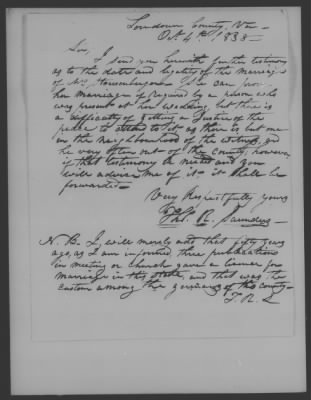 Loundoun County, Va
Oct 4th 1838
Sir,
I send you herewith further testimony
as to the date and legality of the marriage
of Mrs Housenbergon. She can prove
her marriage if required by a person who
was present at her wedding but there is
a difficulty of getting a Justice of the
peace to attend to it as there is but one
in the neighbourhood of the witness, and
he very often out of the County; however,
if that testimony be needed and you
will advise me of it it shall be
forwarded
Very Respectfully yours
Thos. R. Saunders
N. B. I will merely add that fifty years
ago, as I am informed three publications
in meeting or church gave a license for
marriage in this state, and that was the
custom among the germans of this county
T. R. S